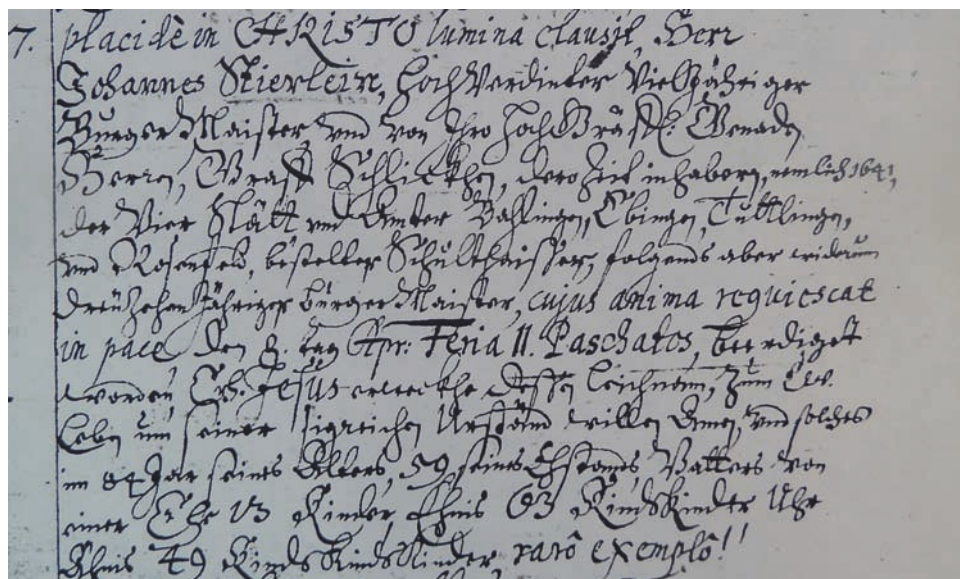 7. placidè in CHRISTO lumina clausit, Herr
Johannes Stierlein, HochVerdinter VielJähriger
BurgerMaister vnd von Ihro HochGräffl: Genaden
Herren, Graff Schlickhen, dero Zeit inhabern, nemlich 1641,
der Vier Stätt vnd Ämter Bahlingen, Ebingen, Tuttlingen,
vnd Rosenfeld, bestelter Schulthaissen, folgends aber widerum
dreüZehenJähriger BurgerMaister, cujus anima requiescat
in pace, den 8. tag Apr: Feria II. Paschatos, beerdiget
worden Chr. Jesus erweckhe dessen Leichnam, Zum Ew.
Leben um seiner sigreichen Urständ willen Amen, vnd solches
im 84 Jar seines Alters, 59 seines Ehstands, Vatters von
einer Ehe 13 Kinder, Ehnis 63 KindsKinder Uhr
Ehnis 49 KindsKindsKinder, rarô exemplô!!